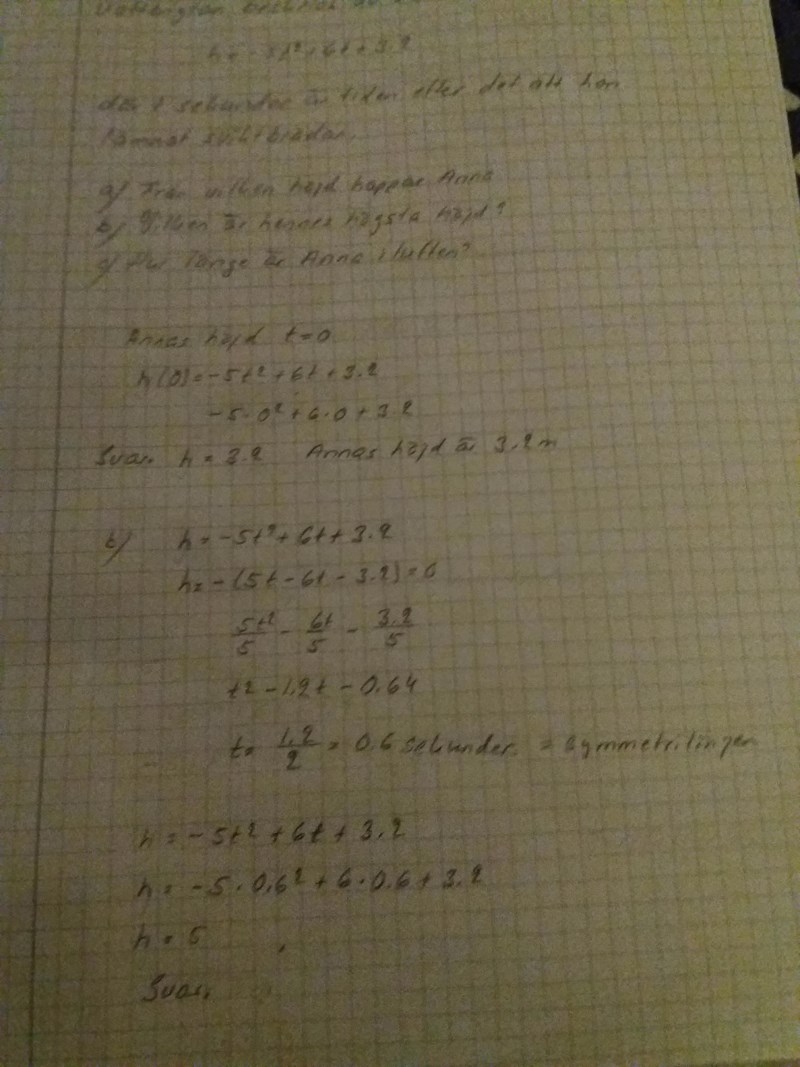 h = -5t² + 6t + 3.2
där t sekunder är tiden efter det att hon
lämnat sviktbrädan.
a) Från vilken höjd hoppar Anna
b) Vilken är hennes högsta höjd?
c) Hur länge är Anna i luften?
Annas höjd t=0
h(0) = -5t² + 6t + 3.2
-5·0² + 6·0 + 3.2
Svar. h = 3.2 Annas höjd är 3.2 m
b) h = -5t² + 6t + 3.2
h = -(5t - 6t - 3.2) = 0
5t²/5 - 6t/5 - 3.2/5
t² - 1.2t - 0.64
t = 1.2/2 = 0.6 sekunder = symmetrilinjen
h = -5t² + 6t + 3.2
h = -5·0.6² + 6·0.6 + 3.2
h = 5
Svar.